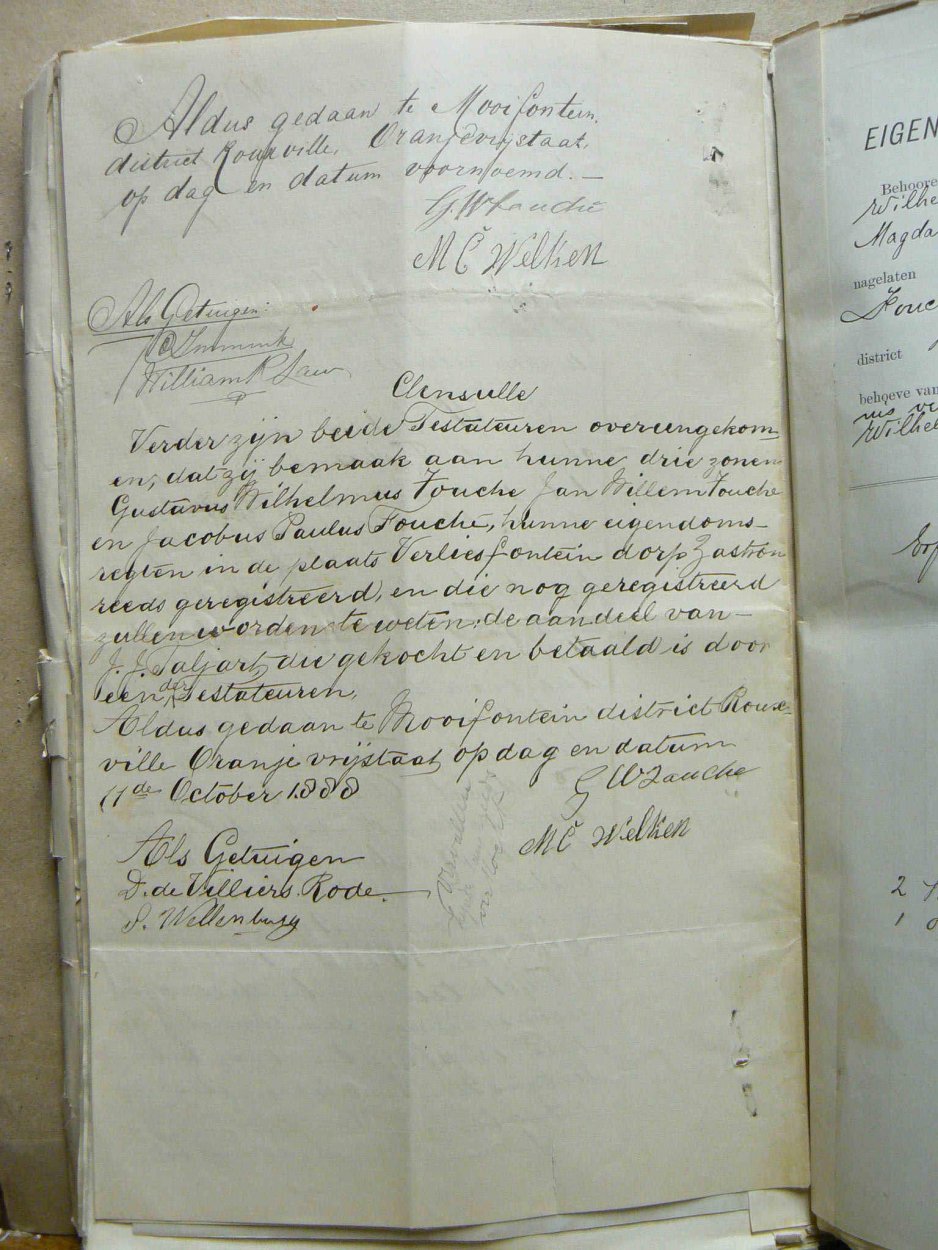 Aldus gedaan te Mooifontein,
district Rouxville, Oranjevrijstaat,
op dag en datum voornoemd. —
G. W Fouché
M C Welken
Als Getuigen:
William R Law
Clensulle
Verder zijn beide Testateuren overeengekom
en, dat zij bemaak aan hunne drie zonen
Gustavus Wilhelmus Fouche Jan Willem Fouche
en Jacobus Paulus Fouché, hunne eigendoms-
regten in de plaats Verliesfontein dorp Zastron
reeds geregistreerd, en die nog geregistreerd
zullen worden te weten: de aandeel van—
J. J. Taljart, die gekocht en betaald is door
een der Testateuren.
Aldus gedaan te Mooifontein district Roux-
ville Oranje vrijstaat op dag en datum
11de October 1888
G W Fouche
M C Welken
Als Getuigen
D. de Villiers. Rode.
S. Wellenburg
EIGEN
Behoore
Wilhe
Magda
nagelaten
Fouc
district
behoeve van
Wilhel
2
1